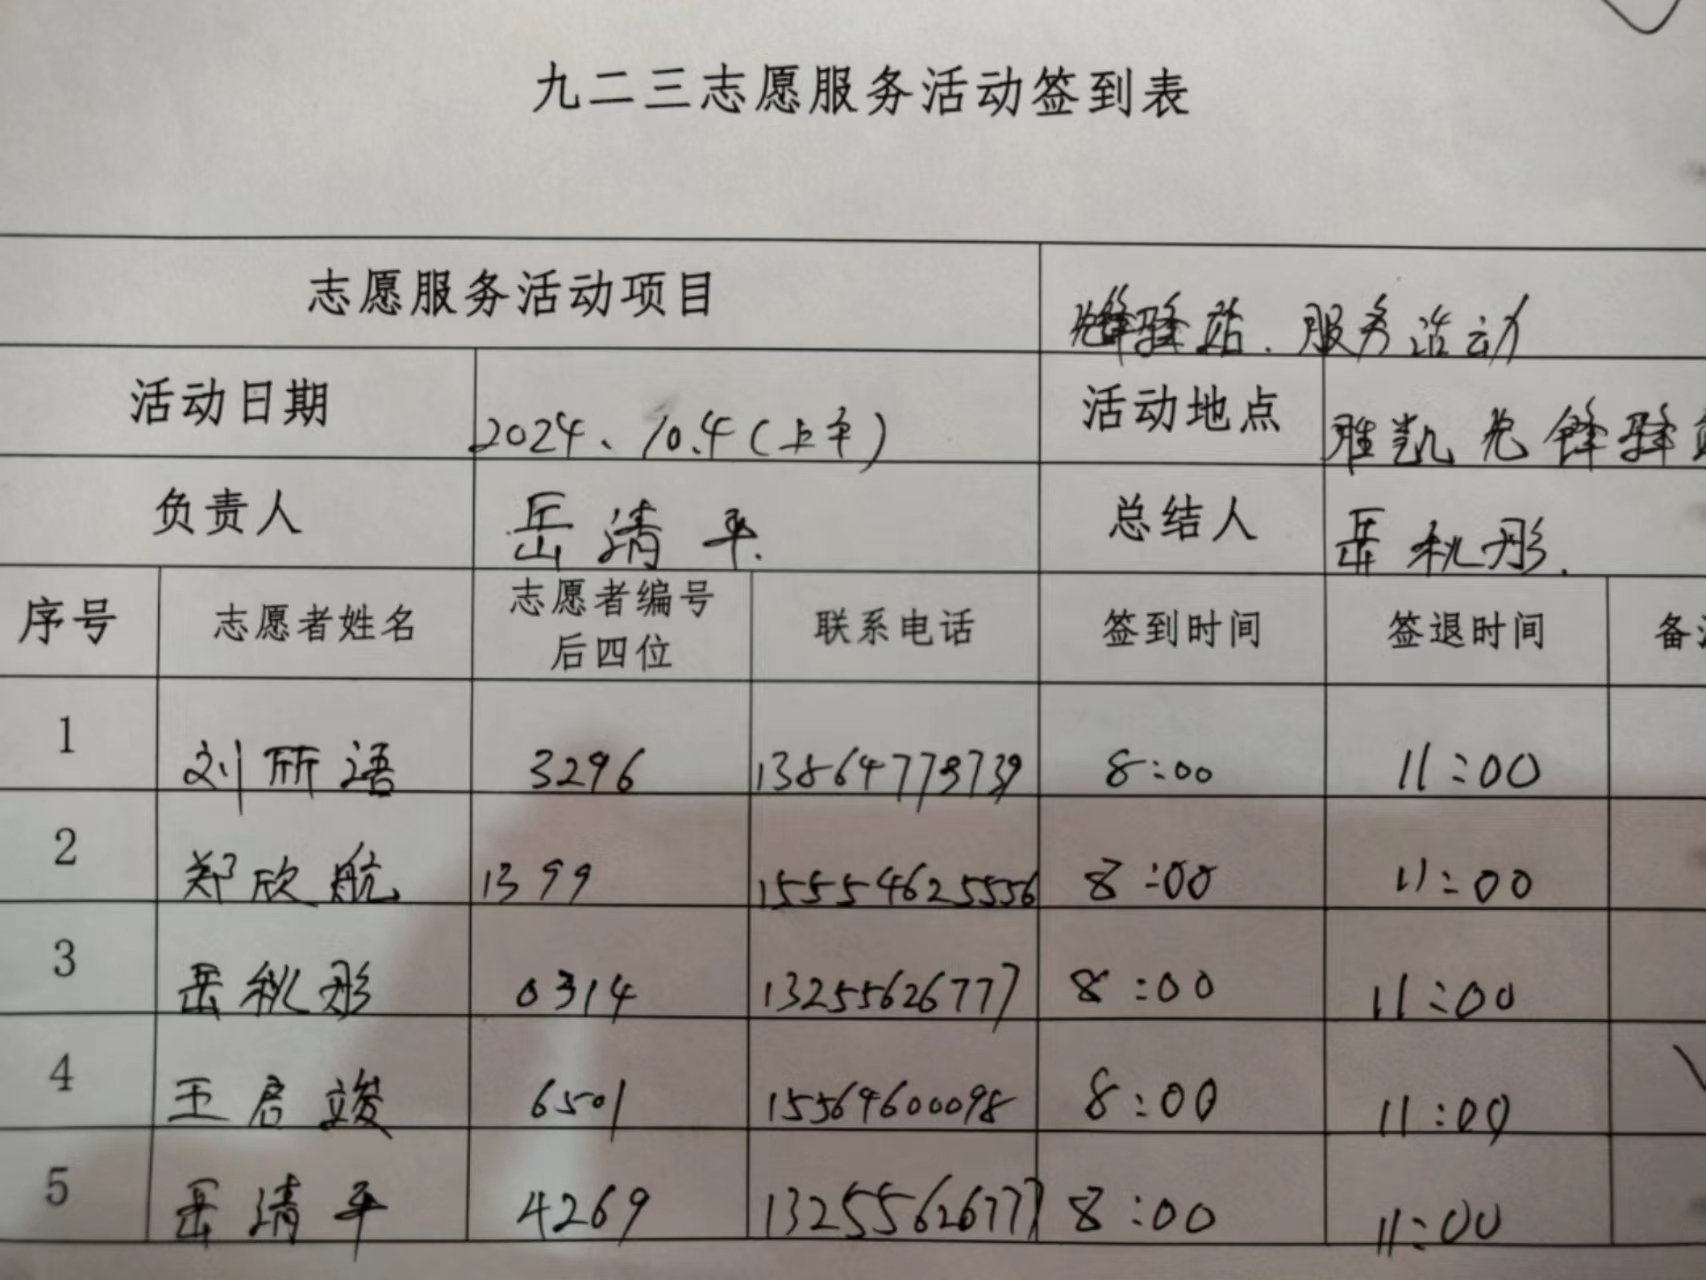 九二三志愿服务活动签到表
志愿服务活动项目 驿站.服务活动
活动日期 2024、10.4(上午) 活动地点 胜凯先锋驿
负责人 岳清平. 总结人 岳秋彤.
序号 志愿者姓名 志愿者编号后四位 联系电话 签到时间 签退时间 备
1 刘 语 3296 8:00 11:00
2 郑欣航 1399 15554625556 8:00 11:00
3 岳秋彤 0314 13255626777 8:00 11:00
4 王君竣 6501 15564600098 8:00 11:00
5 岳清平 4269 13255626777 8:00 11:00